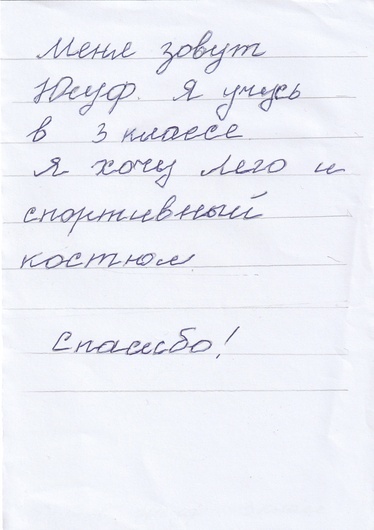 Меня зовут
Юсуф. Я учусь
в 3 классе
я хочу лего и
спортивный
костюм
Спасибо!